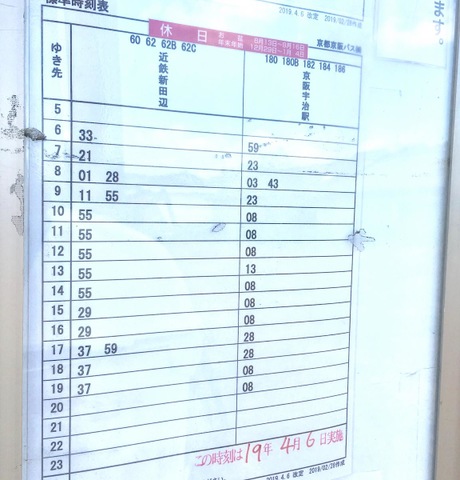 標準時刻表
2019.4.6 改定 2019/02/26作成
ます。
休日 お盆 8月13日~8月16日
年末年始 12月29日~1月4日
京都京阪バス㈱
ゆき先
60 62 62B 62C
近鉄新田辺
180 180B 182 184 186
京阪宇治駅
5
6 33 59
7 21 23
8 01 28 03 43
9 11 55 23
10 55 08
11 55 08
12 55 08
13 55 13
14 55 08
15 29 08
16 29 08
17 37 59 28
18 37 28
19 37 08
20
21
22
23
この時刻は19年 4月 6日実施
2019.4.6 改定 2019/02/26作成